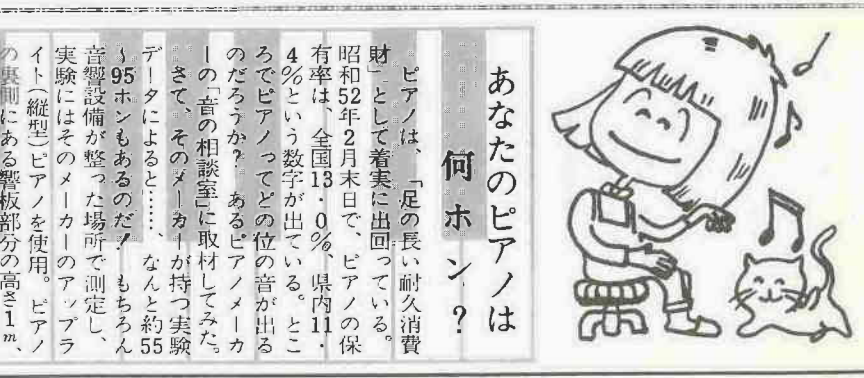 あなたのピアノは
何ホン？
ピアノは、「足の長い耐久消費
財」として着実に出回っている。
昭和52年2月末日で、ピアノの保
有率は、全国13・0％、県内11・
4％という数字が出ている。とこ
ろでピアノってどの位の音が出る
のだろうか？　あるピアノメーカ
ーの「音の相談室」に取材してみた。
さて、そのメーカーが持つ実験
データによると……、なんと約55
〜95ホンもあるのだ！　もちろん
音響設備が整った場所で測定し、
実験にはそのメーカーのアップラ
イト（縦型）ピアノを使用。ピアノ
の裏側にある響板部分の高さ1m、